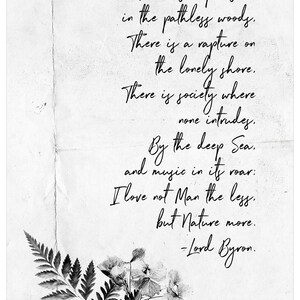 in the pathless woods,
There is a rapture on
the lonely shore,
There is society where
none intrudes,
By the deep Sea,
and music in its roar:
I love not Man the less,
but Nature more.
-Lord Byron.